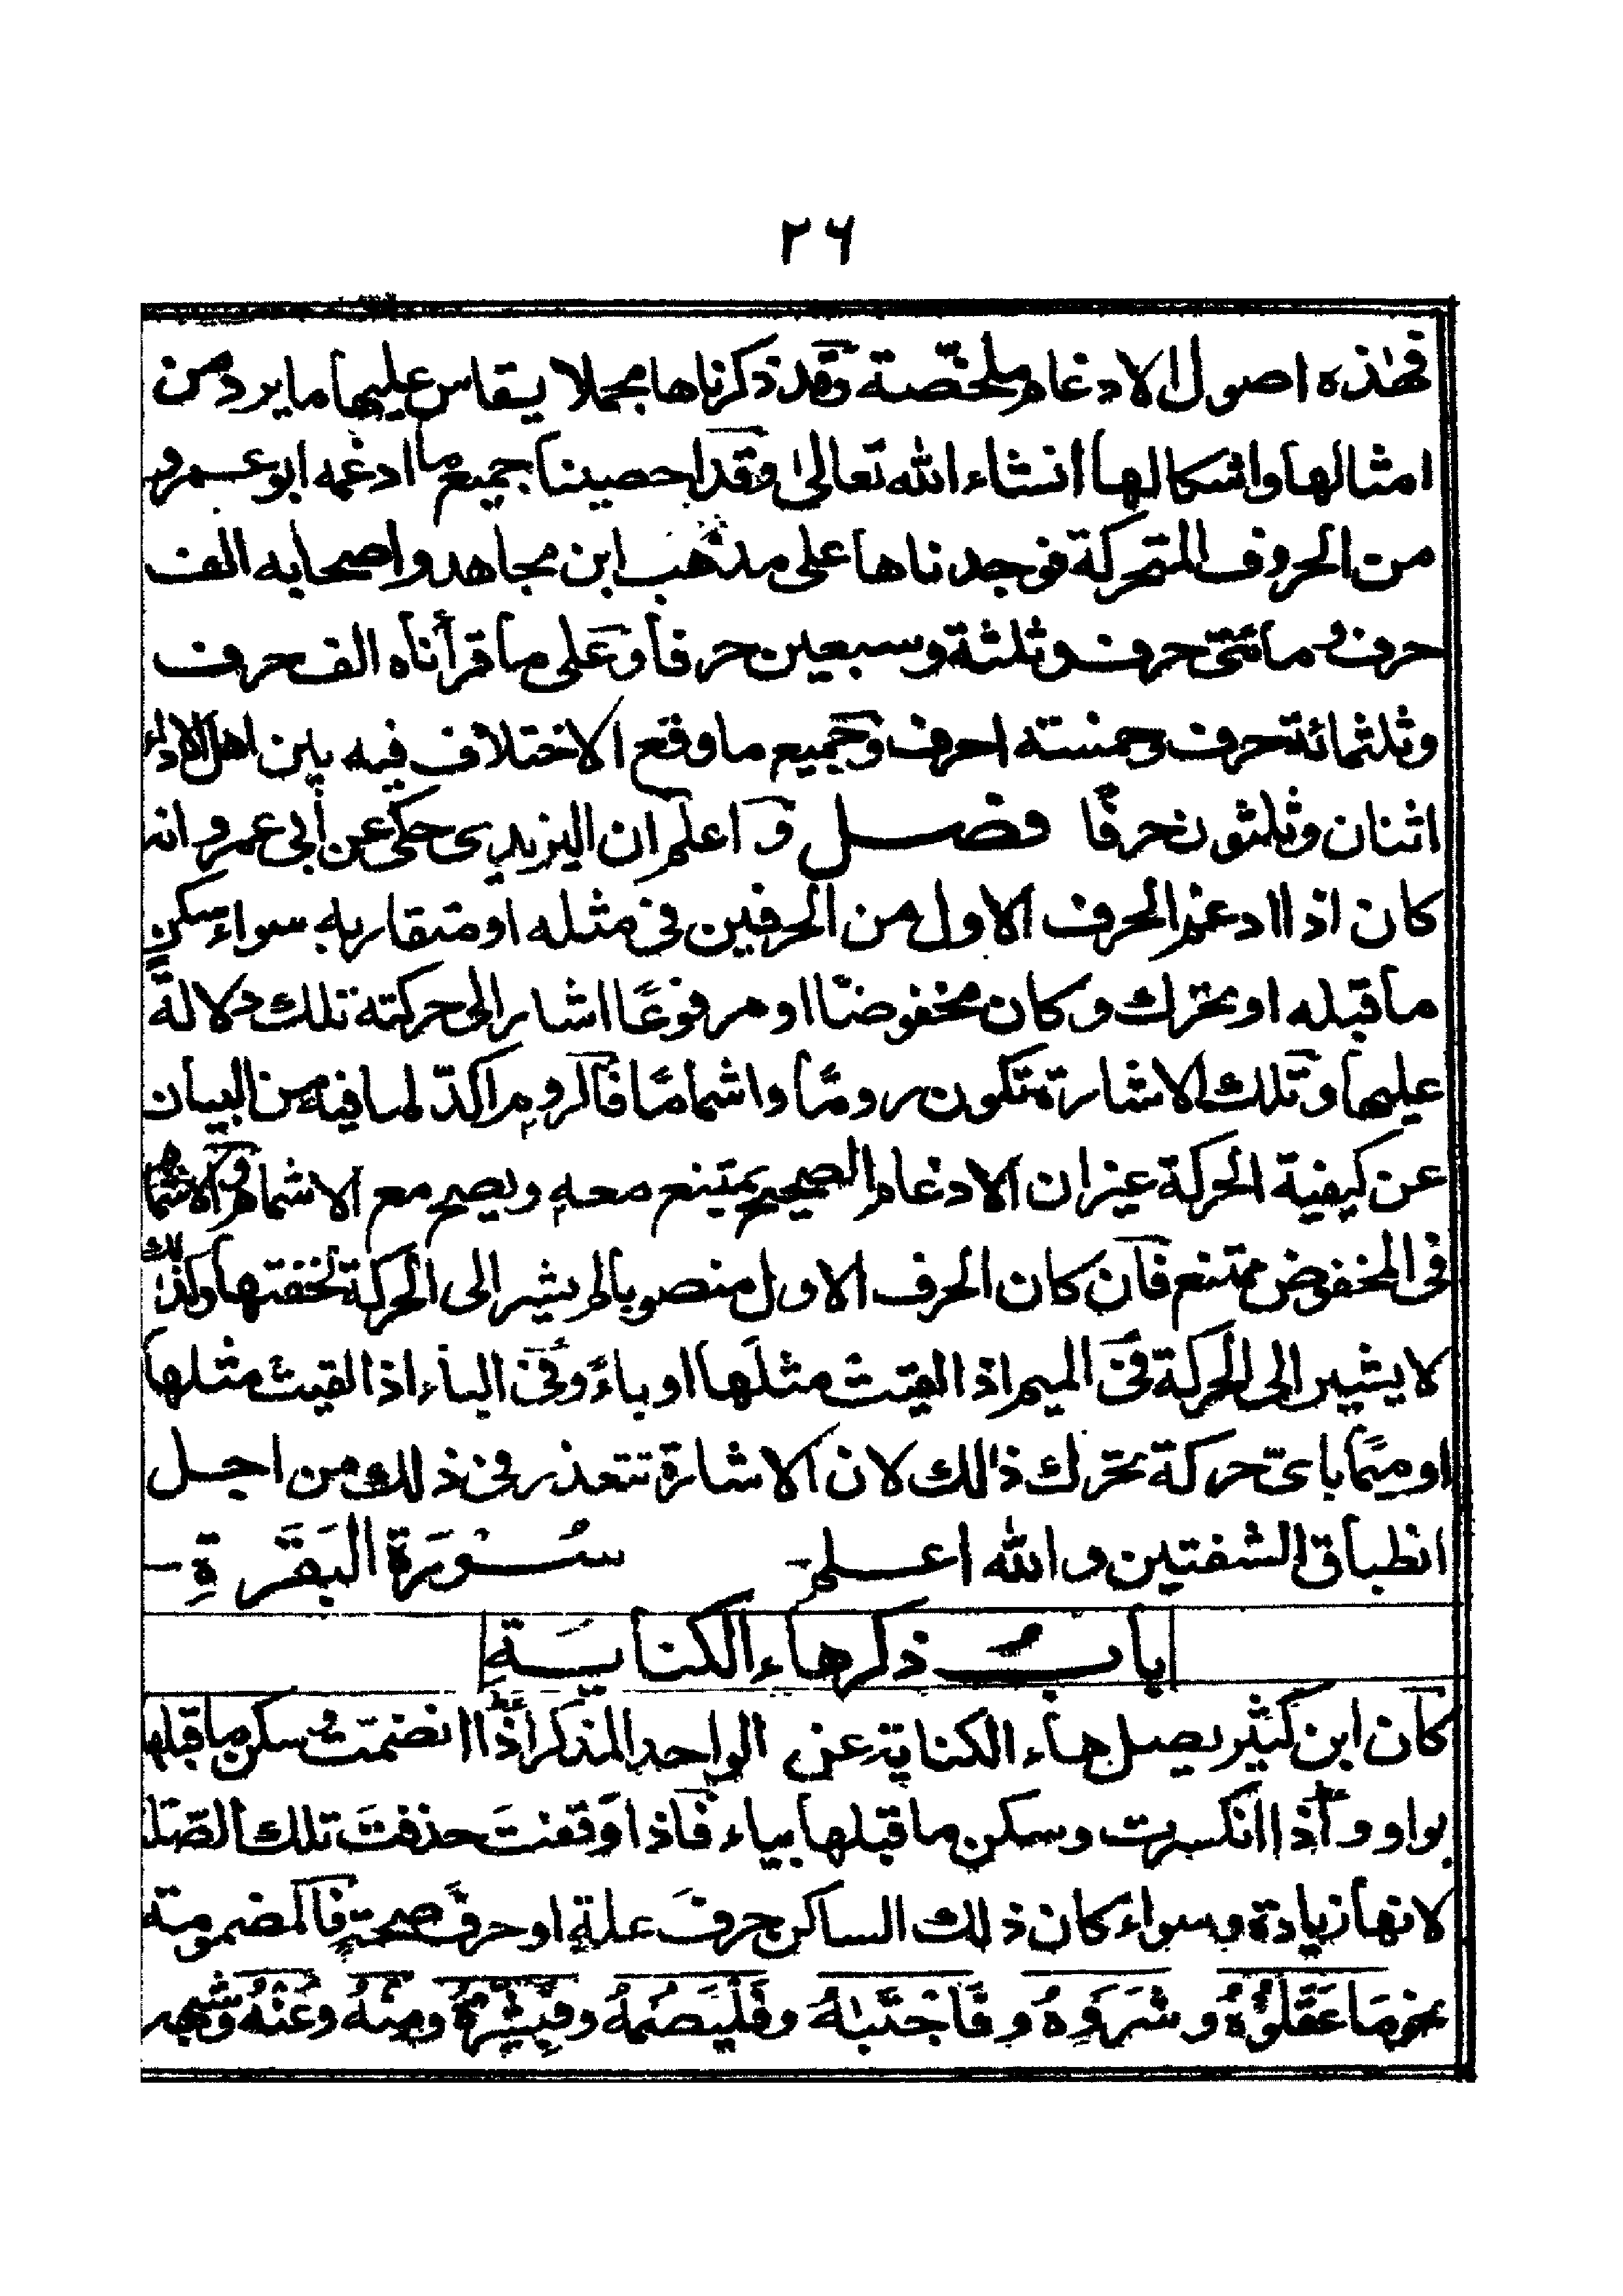 ٢٦
فهٰذه اصول الادغام ملخّصة وقد ذكرناها مجملا يقاس عليها ما يرد من
امثالها واشكالها انشاء الله تعالىٰ وقد احصينا جميع ما ادغمه ابو عمرو
من الحروف المتحركة فوجدناها على مذهب ابن مجاهد واصحابه الف
حرف ومائتى حرف وثلثة وسبعين حرفا وعلى ما قرأناه الف حرف
وثلثمائة حرف وخمسته احرف وجميع ما وقع الاختلاف فيه بين اهل الاداء
اثنان وثلثون حرفًا فصل واعلم ان اليزيدى حكى عن أبى عمرو انه
كان اذا ادغم الحرف الاول من الحرفين فى مثله او متقاربه سواء سكن
ما قبله او تحرك وكان مخفوضًا او مرفوعًا اشار الى حركته تلك دلالة
عليها وتلك الاشارة تكون رومًا واشمامًا فالروم اكدّ لما فيه من البيان
عن كيفية الحركة غير ان الادغام الصحيح يمتنع معه ويصح مع الاشمام والاشمام
فى المخفوض ممتنع فان كان الحرف الاول منصوبا لم يشر الى الحركة لخفتها وكذلك
لا يشير الى الحركة فى الميم اذا لقيت مثلها او باءً وفى الباء اذا لقيت مثلها
او ميمًا باى حركة تحرك ذالك لان الاشارة تتعذر فى ذلك من اجل
انطباق الشفتين والله اعلم - سُورَة البَقَرَةِ -
باب ذكر هاء الكناية
كان ابن كثير يصل هاء الكناية عن الواحد المذكر اذا انضمت وسكن ما قبلها
بواو و اذا انكسرت وسكن ما قبلها بياء فاذا وَقفتَ حذفتَ تلك الصّلة
لانها زيادة وسواء كان ذلك الساكن حرفَ علةٍ او حرفَ صحةٍ فالمضمومة
نحو مَا عَقَلُوْهُ و شَرَوْهُ و فَاجْتَبٰهُ و فَلْيَصُمْهُ و فبشِّرْهُ ومِنْهُ وعَنْهُ